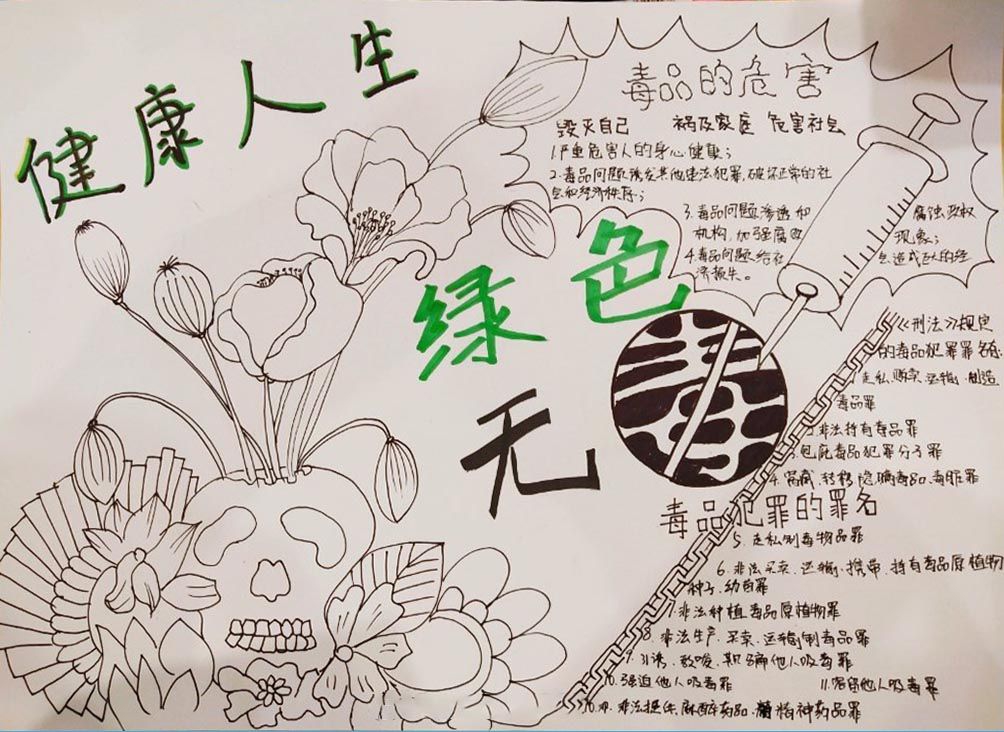 健康人生
绿色
无毒
毒品的危害
毁灭自己 祸及家庭 危害社会
1.严重危害人的身心健康;
2.毒品问题诱发其他违法犯罪,破坏正常的社
会和经济秩序;
3.毒品问题渗透和 腐蚀政权
机构,加强腐败 现象;
4.毒品问题给社 会造成巨大的经
济损失。
《刑法》规定
的毒品犯罪罪名有:
1.走私、贩卖、运输、制造
毒品罪
2.非法持有毒品罪
3.包庇毒品犯罪分子罪
4.窝藏、转移、隐瞒毒品、毒赃罪
毒品犯罪的罪名
5.走私制毒物品罪
6.非法买卖、运输、携带、持有毒品原植物
种子、幼苗罪
7.非法种植毒品原植物罪
8.非法生产、买卖、运输制毒品罪
9.引诱、教唆、欺骗他人吸毒罪
10.强迫他人吸毒罪 11.容留他人吸毒罪
非法提供麻醉药品、精神药品罪